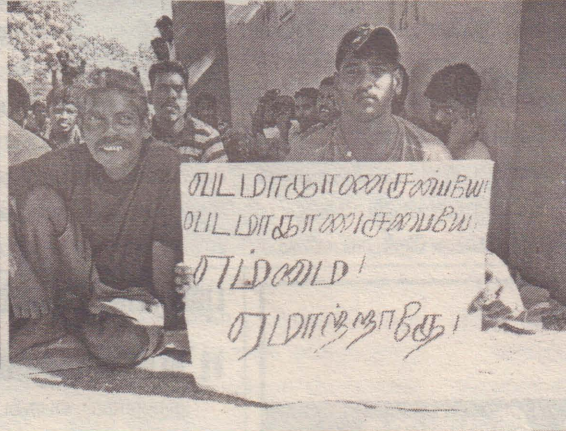 வடமாகாணசபையே!
வடமாகாணசபையே!
எம்மை!
ஏமாற்றாதே!